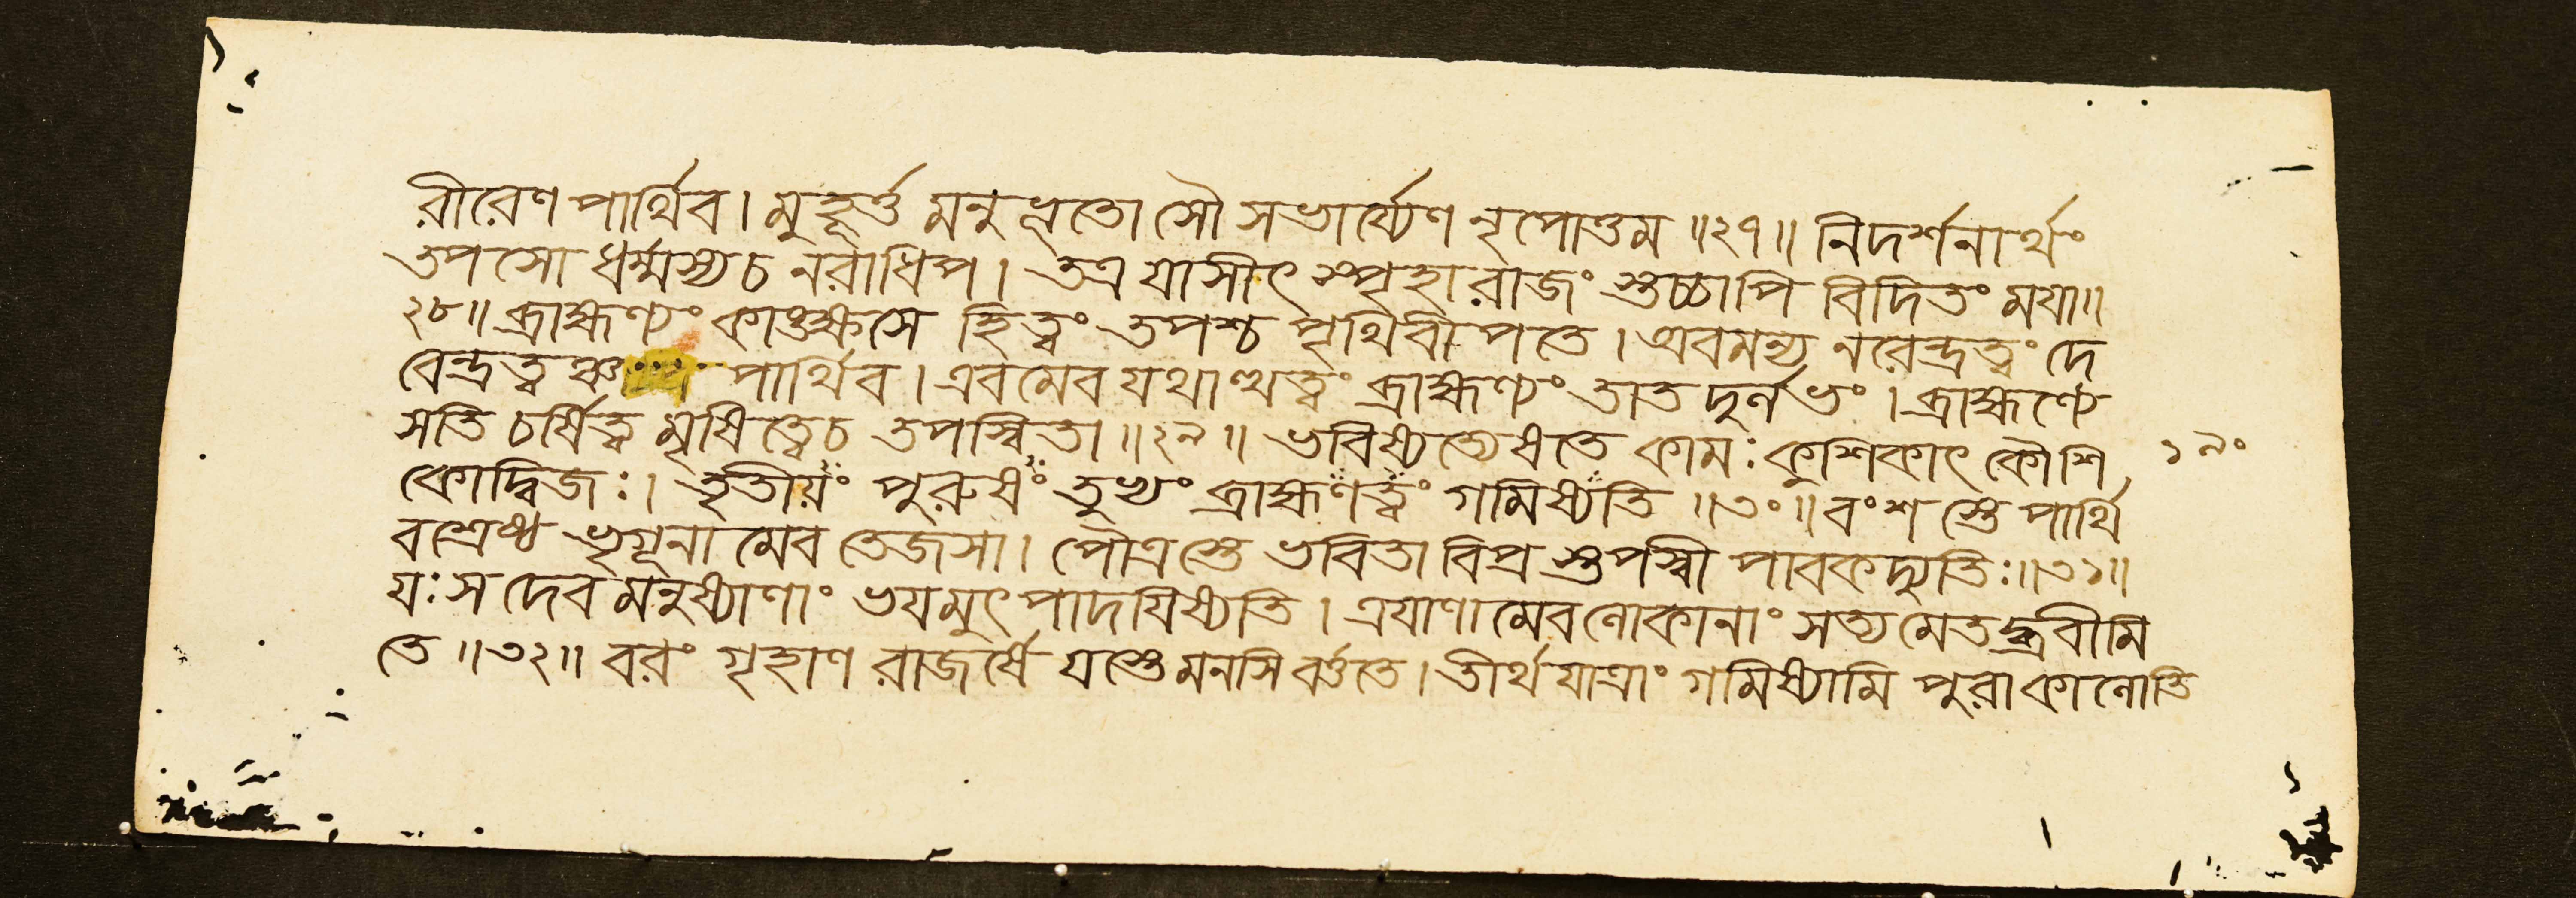 রীরেণ পার্থিব। মুহূর্ত্ত মনুভূতো সৌ সভার্য্যেণ নৃপোত্তম ॥২৭॥ নিদর্শনার্থং
তপসো ধর্ম্মস্য চ নরাধিপ। তত্র যাসীৎ স্পৃহা রাজং স্তচ্চাপি বিদিতং ময়া॥
২৮॥ ব্রাহ্মণ্যং কাঙ্ক্ষসে হিত্বং তপশ্চ পৃথিবীপতে। অবমন্য নরেন্দ্রত্বং দে
বেন্দ্রত্বঞ্চ পার্থিব। এবমেব যথাত্থত্বং ব্রাহ্মণ্যং তাত দুর্লভং। ব্রাহ্মণ্যে
সতি চর্ষিত্ব মৃষিত্বেচ তপস্বিতা॥২৯॥ ভবিষ্যত্যেষতে কামঃ কুশিকাৎ কৌশি
১৯০
কোদ্বিজঃ। তৃতীয়ং পুরুষং তুভ্যং ব্রাহ্মণত্বং গমিষ্যতি॥৩০॥ বংশ স্তে পার্থি
বশ্রেষ্ঠ ভৃগূনা মেব তেজসা। পৌত্রস্তে ভবিতা বিপ্র স্তপস্বী পাবকদ্যুতিঃ॥৩১॥
যঃ স দেব মনুষ্যাণাং ভয়মুৎপাদয়িষ্যতি। ত্রয়াণামেব লোকানাং সত্যমেতদ্ব্রবীমি
তে॥৩২॥ বরং গৃহাণ রাজর্ষে যস্তে মনসি বর্ত্ততে। তীর্থযাত্রাং গমিষ্যামি পুরা কালোতি